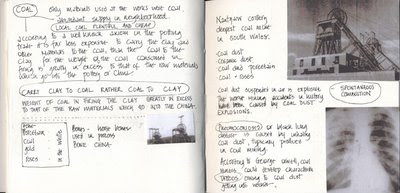 COAL
Only materials used at the works were coal.
abundant supply in neighbourhood.
LOCAL COAL PLENTIFUL AND CHEAP
According to a well known axiom in the potting
trade it is far less expensive to carry the clay and
other materials to the coal, than the coal to the
clay for the weight of the coal consumed in
firing is greatly in excess to that of the raw materials
which go into the pottery or china
CARRY CLAY TO COAL RATHER COAL TO CLAY
WEIGHT OF COAL IN FIRING THE CLAY GREATLY IN EXCESS
TO THAT OF THE RAW MATERIALS WHICH GO INTO THE CHINA
Bone
Porcelain
coal
gold
roses
in the waste
Bones - horse bones
used in process
BONE CHINA
colliery,
deepest coal mine
in South Wales.
Coal dust
Ceramic dust
Coal and Porcelain
Coal + roses
Coal dust suspended in air is explosive
The worse mining accidents in history
have been caused by COAL DUST
EXPLOSIONS.
SPONTANEOUS
COMBUSTION
PNEUMOCONIOSIS or black lung
disease is caused by inhaling
coal dust, typically produced
in coal mining.
According to George Orwell, coal
miners could develop characteristic
TATTOOS owing to coal dust
getting into wounds.